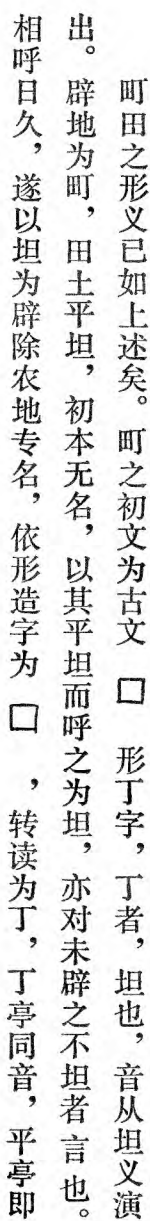 町田之形义已如上述矣。町之初文为古文 □ 形丁字，丁者，坦也，音从坦义演
出。辟地为町，田土平坦，初本无名，以其平坦而呼之为坦，亦对未辟之不坦者言也。
相呼日久，遂以坦为辟除农地专名，依形造字为 □ ，转读为丁，丁亭同音，平亭即